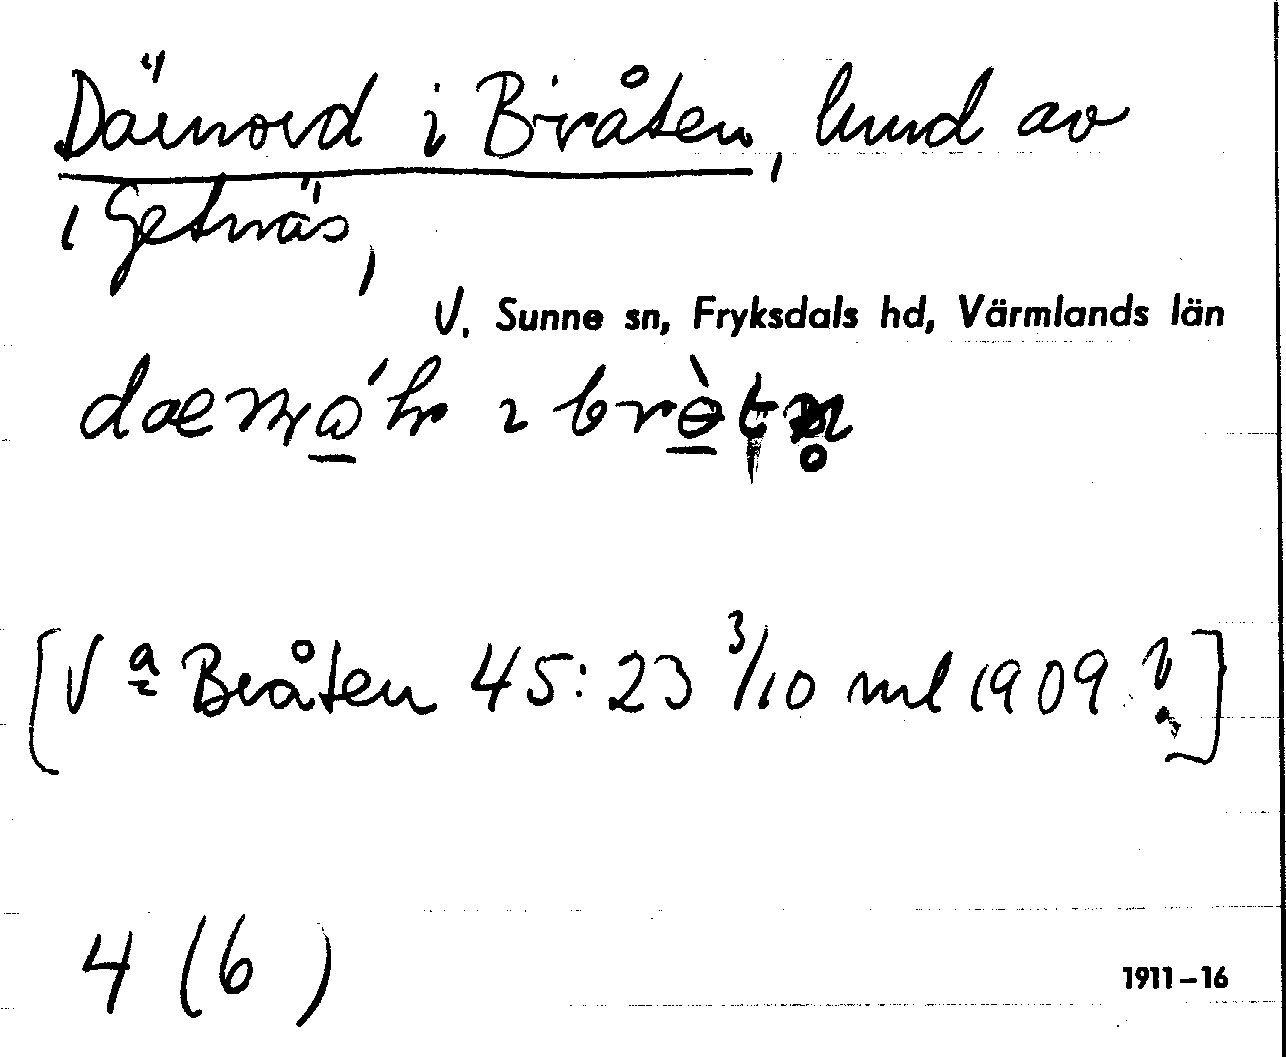 Därnord i Bråten, hmd av
i Getnäs,
V. Sunne sn, Fryksdals hd, Värmlands län
i
[Va Bråten 45:23 3/10 mtl 1909 ]
4 (6 )
1911-16